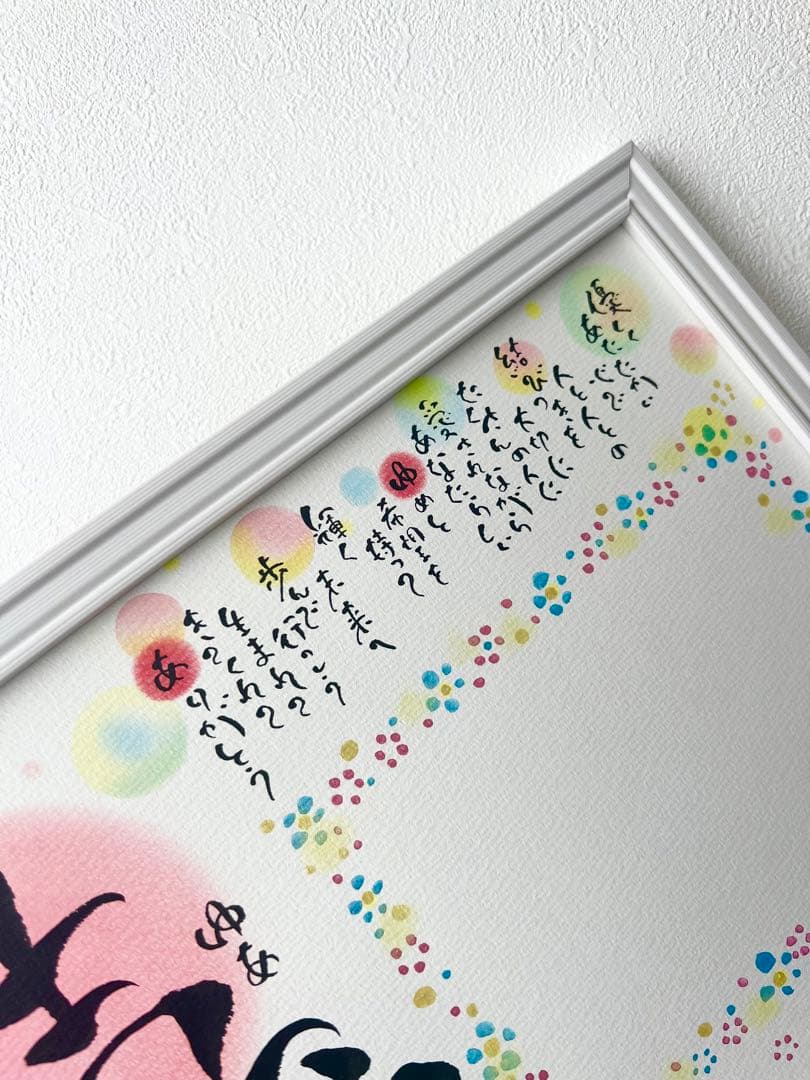 人と人との
結びつきを
大切に
たくさんの人に
愛されながら
あなたらしい
ゆめと
希望を
持って
輝く未来へ
歩んで行こう
生まれて
きてくれて
ありがとう
ゆあ